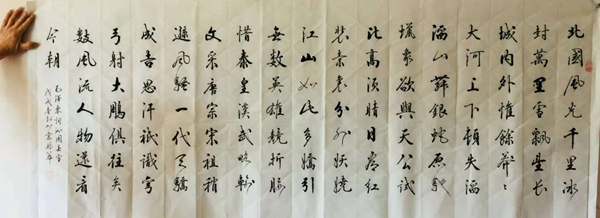 北國風光千里冰
封萬里雪飄望長
城内外惟餘莽々
大河上下頓失滔
滔山舞銀蛇原馳
蠟象欲與天公試
比高須晴日看紅
裝素裹分外妖嬈
江山如此多嬌引
無數英雄競折腰
惜秦皇漢武略輸
文采唐宗宋祖稍
遜風騷一代天驕
成吉思汗祗識彎
弓射大鵬俱往矣
數風流人物還看
今朝
毛澤東詞沁園春雪
戊戌